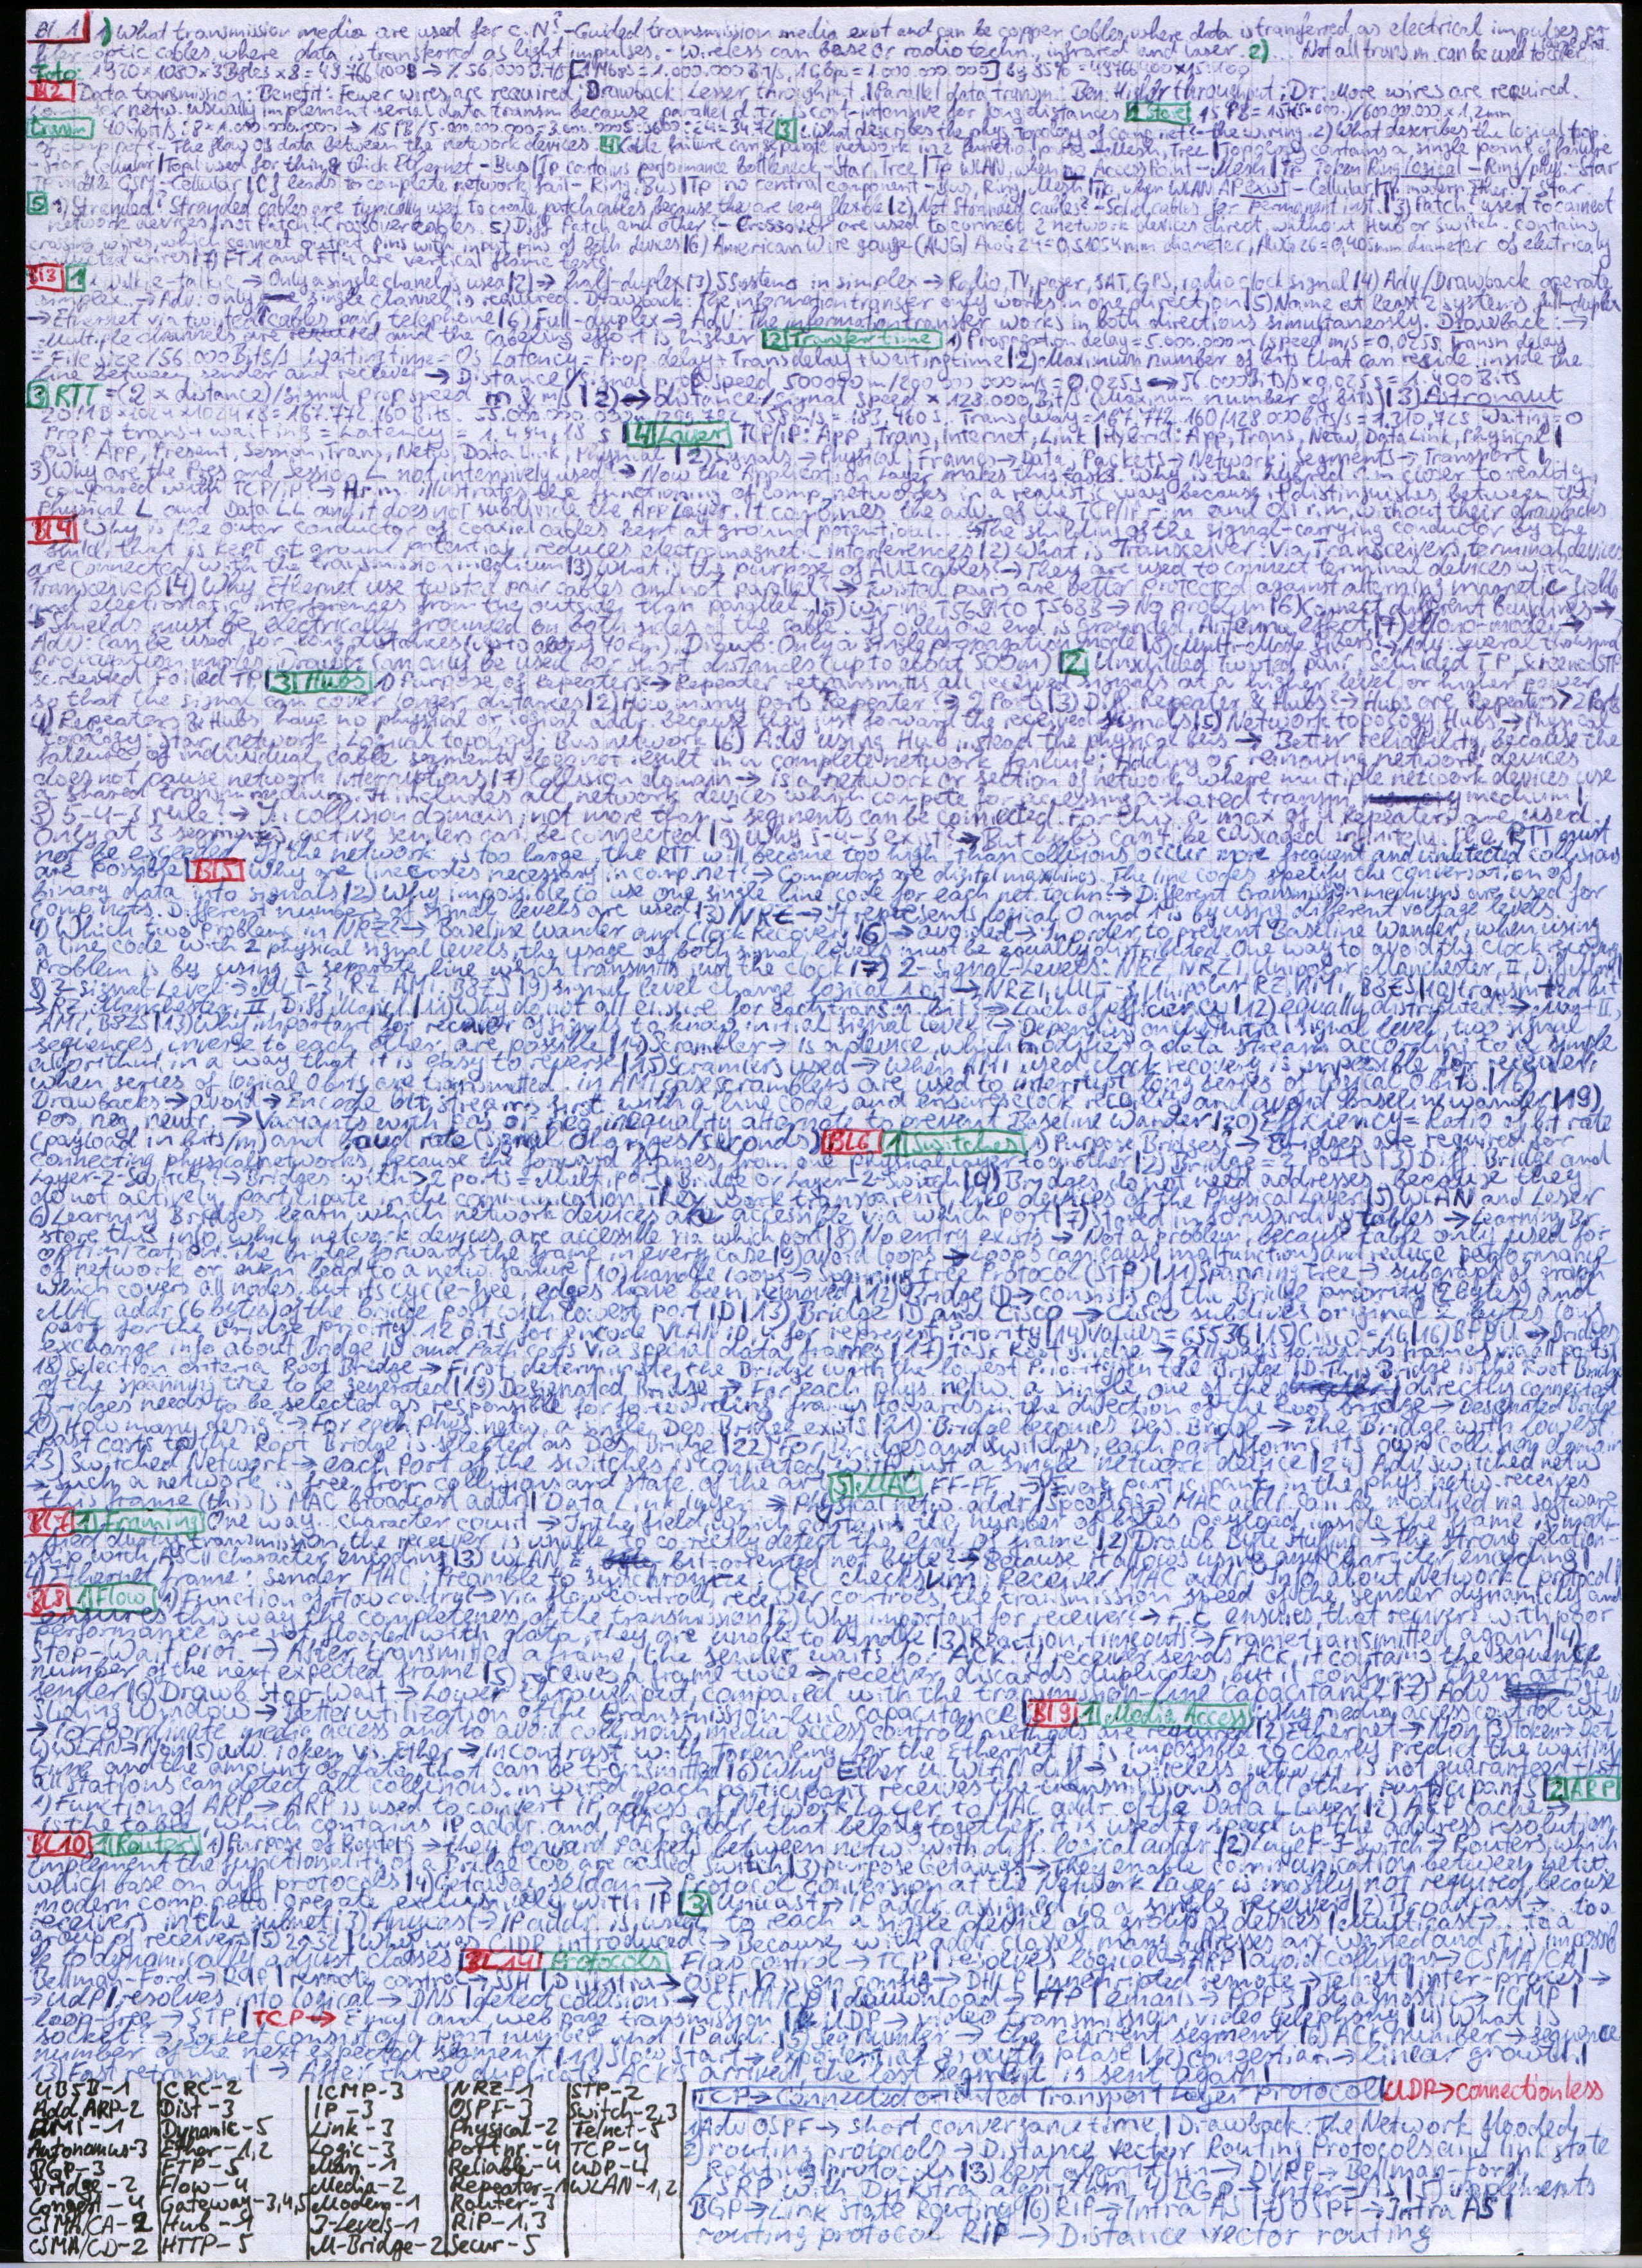 Bl.1 1) What transmission media are used for c.N? - Guided transmission media exist and can be copper cables, where data is transferred as electrical impulses or
fiber-optic cables where data is transferred as light impulses. - Wireless can base or radio techn, infrared and laser. 2) Not all transm. m can be used
Foto: 1920×1080×3 Bytes×8 = 49.766.400
Bl2 Data transmission: Benefit: Fewer wires are required; Drawback Lesser throughput. | Parallel data transm: Ben. Higher throughput; Dr: More wires are required.
Computer netw. usually implement serial data transm because parallel d.t. is cost-intensive for long distances 1 Store
Transm 3 1. What describes the phys. topology of comp. net? - the wiring 2) What describes the logical top.
of comp. net - The flow of data between the network devices 4 Cable failure can separate network in 2 functional parts - Mesh, Tree | Topology contains a single point of failure
- Star, Cellular | Topol used for thin & thick Ethernet - Bus | Tp contains performance bottleneck - Star Tree | Tp WLAN, when Access Point - Mesh | Tp Token Ring logical - Ring/phys. - Star
Tp mobile GSM - Cellular | CS leads to complete network fail - Ring, Bus | Tp no central component - Bus, Ring, Mesh | Tp when WLAN AP exist - Cellular | Tp modern Ether. - Star
5 1) Stranded? Stranded cables are typically used to create patch cables because they are very flexible | 2) Not Stranded cables? - Solid cables for permanent inst. | 3) Patch? used to connect
network devices | not Patch - Crossover cables. 5) Diff Patch and other? - Crossover are used to connect 2 network devices direct without Hub or switch. contains
crossing wires, which connect output pins with input pins of both devices | 6) American Wire gauge (AWG) AWG 24 = 0,51054mm diameter, AWG 26 = 0,405mm diameter of electricaly
wires | 7) FT1 and FT4 are vertical flame tests
Bl3 1 Walkie-talkie → Only a single chanel is used | 2) → half-duplex | 3) 5 Systems in simplex → Radio, TV, pager, SAT, GPS, radio clock signal | 4) Adv/Drawback operate
simplex → Adv: only single channel is required. Drawback: The information transfer only works in one direction | 5) Name at least 2 systems full-duplex
→ Ethernet via twisted cables pair, telephone | 6) Full-duplex → Adv: The information transfer works in both directions simultaneously. Drawback: →
Multiple channels are required and the cabeling effort is higher 2 Transfer time 1) Propagation delay = 5.000.000m/speed m/s = 0,025s Transm delay
= File size/56.000 Bits/s Waiting time = 0s Latency = Prop. delay + Trans delay + Waiting time | 2) Maximum number of bits that can reside inside the
line between sender and receiver → Distance/signal prop speed
3 RTT = (2 × distance)/signal prop speed m & m/s | 2) → distance/signal speed × 128.000 Bit/s (Maximum number of Bits) | 3) Astronaut
20MB×1024×1024×8 = 167.772.160 Bits
Prop + trans + waiting = Latency 4 Layer TCP/IP: App, Trans, Internet, Link | Hybrid: App, Trans, Netw, Data Link, Physical |
OSI: App, Present, Session, Trans, Netw, Data Link, Physical | 2) Signals → Physical; Frames → Data; Packets → Network; Segments → Transport |
3) Why are the Pres and Session L. not intensively used → Now the Application Layer makes this tasks. Why is the hybrid r.m closer to reality,
compared with TCP/IP? → H.r.m. illustrates the functioning of comp. networks in a realistic way because it distinguishes between the
Physical L and Data LL and it does not subdivide the App Layer. It combines the adv. of the TCP/IP r.m and OSI r.m, without their drawbacks
Bl4 Why is the outer conductor of coaxial cables kept at ground potential. → The shielding of the signal-carrying conductor by the
shield, that is kept at ground potential, reduces electromagnetic interferences | 2) What is Transceiver: Via Transceivers terminal devices
are connected with the transmission medium | 3) What is the purpose of AUI cables? → They are used to connect terminal devices with
Transceivers | 4) Why Ethernet use twisted pair cables and not parallel → Twisted pairs are better protected against alterning magnetic fields
and electrostatic interferences from the outside than parallel. | 5) Wiring T568A to T568B → No problem | 6) Connect different Buildings →
Shields must be electrically grounded on both sides of the cable. If only one end is grounded, Antenna effect | 7) Mono-mode →
Adv: can be used for long distances (up to about 70 km). Disadv: Only a single propagation mode | 8) Multi-Mode fibers → Adv. several transm.
propagation modes. Drawb: can only be used for short distances (up to about 500m) 2 Unshielded twisted pair, Schielded TP, Screened STP
Screened Foiled TP 3 Hubs 1) Purpose of Repeaters → Repeater retransmits all received signals at a higher level or higher power
so that the signal can cover larger distances | 2) How many ports Repeater → 2 Ports | 3) Diff Repeater & Hubs? → Hubs are Repeaters > 2 Ports
4) Repeaters & Hubs have no physical or logical addr. because they just forward the received signals | 5) Network topology Hubs → Physical
topology: Star network - Logical topology: Bus network | 6) Adv using Hub instead the physical bus → Better reliability, because the
failure of individual cable segments does not result in a complete network failure. Adding or removing network devices
does not cause network interruptions | 7) Collision domain → is a network or section of network where multiple network devices use
a shared transm. medium. It includes all network devices which compete for accessing a shared transm medium |
8) 5-4-3 rule? → In collision domain, not more than 5 segments can be connected. For this, a max of 4 repeaters are used.
Only at 3 segments, active senders can be connected | 9) Why 5-4-3 exist? → But hubs can't be cascaded infinitely. The RTT must
not be exceeded. If the network is too large, the RTT will become too high, than collisions occur more frequent and undetected collisions
are possible Bl5 Why are line codes necessary in comp. net? → Computers are digital machines. The line codes specify the conversation of
binary data into signals | 2) Why impossible to use one single line code for each net. techn? → Different transmission mediums are used for
comp. nets. Different numbers of signal levels are used | 3) NRZ → It represents logical 0 and 1s by using different voltage levels.
4) Which two problems in NRZ? → Baseline Wander and Clock Recover. | 6) → avoided → In order to prevent Baseline Wander, when using
a line code with 2 physical signal levels, the usage of both signal levels must be equally distributed. One way to avoid the clock recovery
Problem is by using a separate line which transmits just the clock | 7) 2-Signal-Levels: NRZ, NRZI, Unipolar, Manchester, II, Diff
8) 3-Signal Level → MLT-3, RZ, AMI, B8ZS | 9) Signal level change logical 1 bit → NRZI, MLT-3, Unipolar RZ, AMI, B8ZS | 10) transmitted bit
→ RZ, Manchester, II, Diff Man | 11) Why do not all ensure for each transm. Bit? → Lack of efficiency | 12) equally distributed: → Man II,
AMI, B8ZS | 13) Why important for receiver of signals to know initial signal level? → Depending on the initial signal level, two signal
sequences inverse to each other, are possible | 14) Scrambler → is a device, which modifies a data stream according to a simple
algorithm in a way that it is easy to reverse | 15) Scramblers used → When AMI used clock recovery is impossible for receiver,
when series of logical 0 bits are transmitted. in AMI case scramblers are used to interrupt long series of logical 0 bits | 16)
Drawbacks → avoid → Encode bit streams first with a line code, and ensures clock recovery and avoid baseline wander | 19)
Pos, neg, neutr. → Variants with pos or neg inequality alternate to prevent Baseline Wander | 20) Efficiency = Ratio of bit rate
(payload in bits/m) and baud rate (signal changes/seconds) BL6 1 Switches 1) Purpose Bridges → Bridges are required for
connecting physical networks, because the forward frames, from one physical layer to another | 2) Bridge = 2 Ports | 3) Diff. Bridge and
Layer-2-switch → Bridges with >2 ports = Multiport-Bridge or Layer-2-Switch | 4) Brydges do not need addresses, because they
do not actively participate in the communication. They work transparent, like devices of the Physical Layer | 5) WLAN and Laser
6) Learning Bridges learn which network devices are accessible via which port | 7) Stored in forwarding tables → Learning Br
store this info, which network devices are accessible via which port | 8) No entry exists → Not a problem, because table only used for
optimization. The bridge forwards the frame in every case | 9) avoid loops → Loops can cause malfunctions and reduce performance
of network or even lead to a netw. failure | 10) handle loops → Spanning tree Protocol (STP) | 11) Spanning tree → subgraph of graph
which covers all nodes, but its cycle-free, edges have been removed | 12) Bridge ID → consists of the Bridge priority (2 bytes) and
MAC addr (6 bytes) of the bridge port with lowest port ID | 13) Bridge ID and Cisco → Cisco subdives original 2 bytes long
part for the bridge priority. 12 Bits for encode VLAN ID, 4 for represent Priority | 14) Values = 65536 | 15) Cisco = 16 | 16) BPDU → Bridges
exchange info about Bridge ID and Path Costs via special data frames | 17) Task Root Bridge → allways forwards frames via all ports
18) Selection criteria Root Bridge → First determinate the Bridge with the lowest Priority in the Bridge ID. This Bridge is the Root Bridge
of the spanning tree to be generated | 19) Designated Bridge → For each phys netw. a single, one of the directly connected
Bridges needs to be selected as responsible for forwarding frames towards in the direction of the Root bridge → Designated Bridge
20) How many desig.? → For each phys netw, a single Des Bridge exists | 21) Bridge becomes Des. Bridge → The Bridge with lowest
past costs to the Root Bridge is selected as Des. Bridge | 22) For Bridges and switches, each port forms its own collision domain
23) Switched Network → each Port of the switches is connected with just a single network device | 24) Adv switched netw
→ such a network is free from collisions and state of the art 5 MAC FF-FF.. → Every participant in the phys netw. receives
this frame (this is MAC broadcast addr) Data Link layer → Physical netw. addr | Spoofing → MAC addr. can be modified via software
Bl7 1 Framing One way: character count → If the field, which contains the number of bytes payload inside the frame is modi-
fied during transmission, the receiver is unable to correctly detect the end of frame | 2) Drawb Byte Stuffing → the strong relation-
ship with ASCII character encoding | 3) WLAN, E bit-oriented not byte? → Because it allows using any character encoding |
4) Ethernet frame: Sender MAC; Preamble to synchronize; CRC checksum; Receiver MAC addr; Info about Network L protocol |
Bl8 1 Flow 1) Function of Flow control → via flow controll, receiver controls, the transmission speed of the sender dynamically and
ensures this way the completeness of the transmission | 2) Why important for receiver → F.C ensures, that receivers with poor
performance are not flooded with data, they are unable to handle | 3) Reaction, timeouts → Frame transmitted again | 4)
Stop-Wait prot. → After transmitted a frame, the sender waits for ACK. If receiver sends ACK, it contains the sequence
number of the next expected frame | 5) receives a frame twice → receiver discards duplicates, but it confirms them at the
sender | 6) Drawb Stop-Wait → Lower throughput, compared with the transmission-line capacitance | 7) Adv.
Sliding Window → better utilization of the transmission-line capacitance Bl9 1 Media Access 1) Why media access control use
→ To coordinate media access and to avoid collisions, media access controll methods are required | 2) Ethernet → Non | 3) Token → Det
4) WLAN → Non | 5) adv. Token vs Ether → In contrast with Token Ring, for the Ethernet it is impossible to clearly predict the waiting
time and the amount of data that can be transmitted | 6) Why Ether u. WLAN diff → wireless netw. it is not guaranteed that
all stations can detect all collisions. in wired, each participant receives the transmissions of all other participants 2 ARP
1) Function of ARP → ARP is used to convert IP address of Network Layer to MAC addr. of the Data L Layer | 2) ARP cache →
is the table, which contains IP addr. and MAC addr that belong together, it is used to speed up the address resolution
BL10 1 Router 1) Purpose of Routers → they forward packets between netw. with diff. logical addr. | 2) Layer-3-switch → Routers, which
implement the functionality of a bridge too are called Switch | 3) purpose Getaways → They enable communication between netw.
which base on diff protocoles | 4) Getaway seldom → Protocol conversion at the Network Layer is mostly not required, because
modern comp. netw. operate exclusively with IP 3 Unicast → IP addr. assigned to a single receiver | 2) Broadcast → ..to a
receivers in the subnet | 3) Anycast → IP addr. is used to reach a single device of a group of devices | Multicast → .. to a
group of receivers | 5) 2^32 | Why was CIDR introduced? → Because with addr classes many addresses are wasted and it is impossib
le to dynamicalley adjust classes BL14 Protocols Flow control → TCP | resolves logical → ARP | avoid Collisions → CSMA/CA |
Bellman-Ford → RIP | remote control → SSH | Dijkstra → OSPF | Assign config → DHCP | unencripted remote → telnet | inter-proces →
→ UDP | resolves into logical → DNS | detect collisions → CSMA/CD | download → FTP | emails → POP3 | diagnostic → ICMP |
loop-free → STP | TCP → Email and web page transmission | UDP → video transmission, video telephone | 4) What is
socket? → Socket consist of a port number and IP addr. | 5) Seq number → the current segment | 6) ACK number → sequence
number of the next expected segment | 11) Slow Start → exponential growth phase | 12) congestion → linear growth |
13) Fast retransmit → After three duplicate ACK's arrived, the lost segment is sent again |
4B5B-1 CRC-2 ICMP-3 NRZ-1 STP-2 TCP → Connected-oriented Transport Layer Protocol UDP → connectionless
Add. ARP-2 Dist-3 IP-3 OSPF-3 Switch-2,3
AMI-1 Dynamic-5 Link-3 Physical-2 Telnet-5 1) Adv OSPF → short conversance time | Drawback: The Network flooded
Autonomus-3 Ether-1,2 Logic-3 Port nr.-4 TCP-4 2) routing protocols → Distance vector Routing Protocols and link state
BGP-3 FTP-5 Man-1 Reliable-4 UDP-4 Routing protocols | 3) best algorithm → DVRP → Bellman-Ford,
Bridge-2 Flow-4 Media-2 Repeater-1 WLAN-1,2 LSRP with Dijkstra algorithm, 4) BGP → Inter-AS | 5) implements
Congest-4 Gateway-3,4,5 Modem-1 Router-3 BGP → Link State Routing | 6) RIP → Intra AS | 7) OSPF → Intra AS |
CSMA/CA-2 Hub-1 3-Levels-1 RIP-1,3 routing protocol RIP → Distance vector routing
CSMA/CD-2 HTTP-5 M-Bridge-2 Secur-5